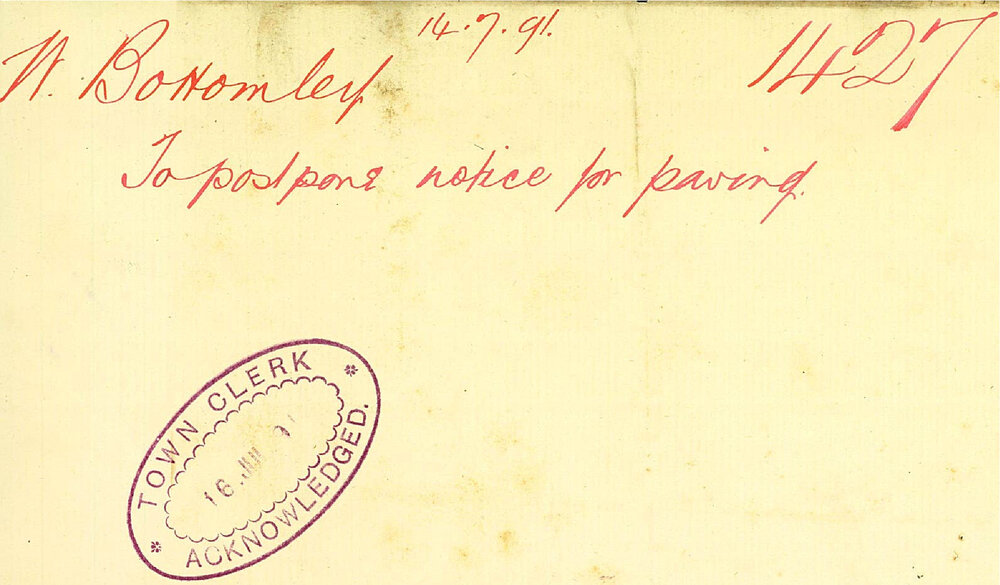 14.7.91.
W. Bottomley
1427
To postpone notice for paving.
TOWN CLERK
16 JUL 91
ACKNOWLEDGED.